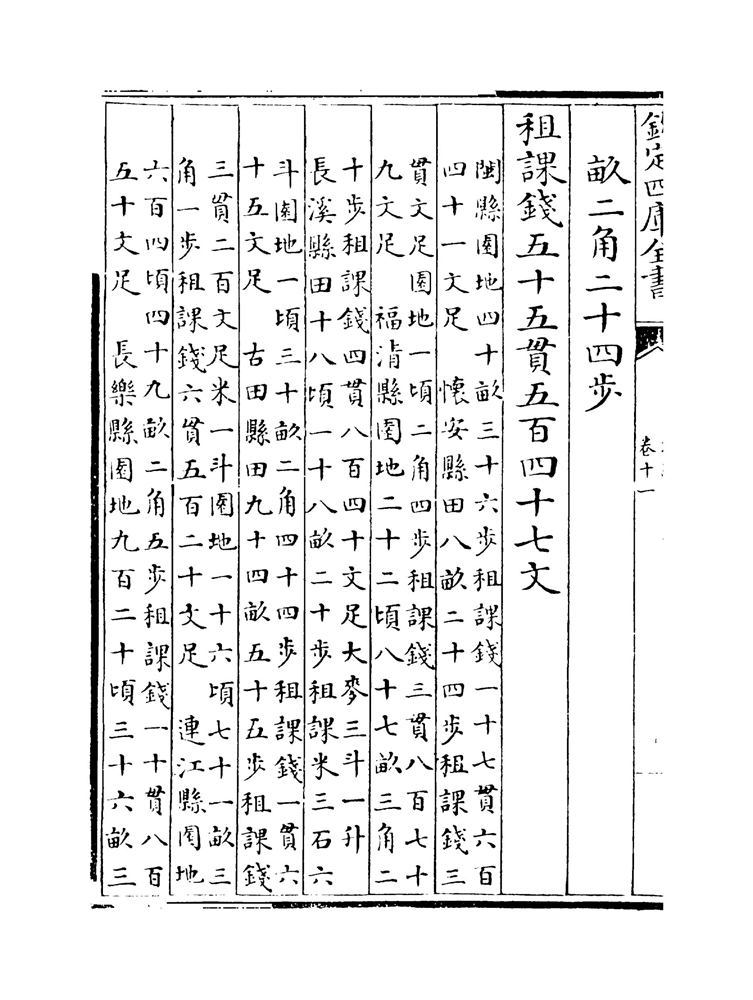 欽定四庫全書
卷十一
畝二角二十四步
租課錢五十五貫五百四十七文
閩縣園地四十畝三十六步租課錢一十七貫六百
四十一文足　懷安縣田八畝二十四步租課錢三
貫文足園地一頃二角四步租課錢三貫八百七十
九文足　福清縣園地二十二頃八十七畝三角二
十步租課錢四貫八百四十文足大麥三斗一升
長溪縣田十八頃一十八畝二十步租課米三石六
斗園地一頃三十畝二角四十四步租課錢一貫六
十五文足　古田縣田九十四畝五十五步租課錢
三貫二百文足米一斗園地一十六頃七十一畝三
角一步租課錢六貫五百二十文足　連江縣園地
六百四頃四十九畝二角五步租課錢一十貫八百
五十文足　長樂縣園地九百二十頃三十六畝三